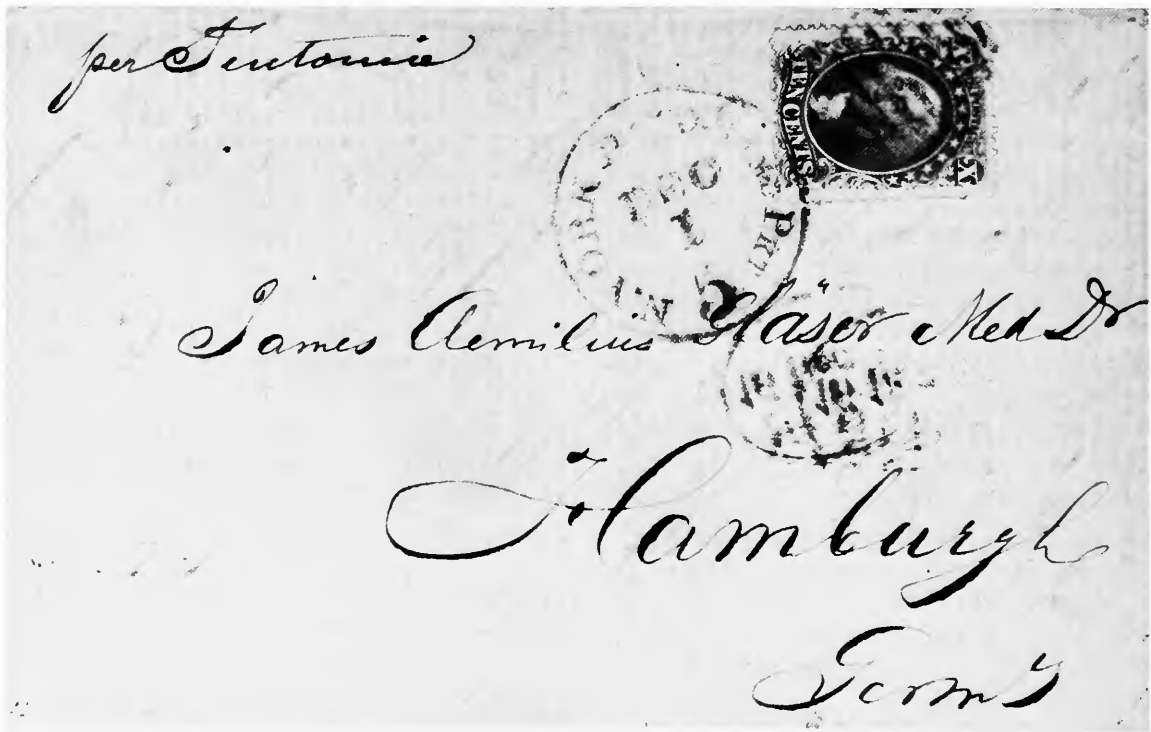 per Teutonia
TEN CENTS
X
DEC
1
James Aemilius Gläser Med Dr
Hamburgh
Germy